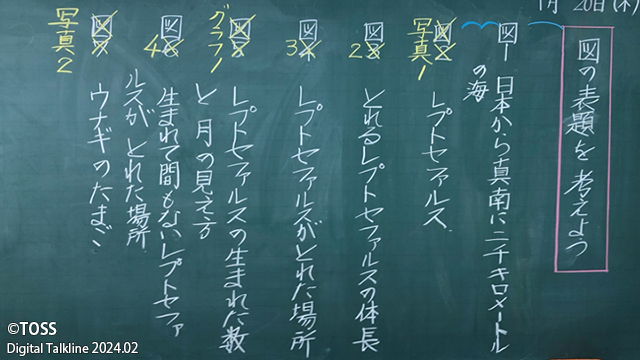 月20日(木)
図の表題を考えよう
図1 日本から真南に二千キロメートル
の海
写真1 図2 レプトセファルス
図3 2 とれるレプトセファルスの体長
図4 3 レプトセファルスがとれた場所
グラフ1 図5 レプトセファルスの生まれた数
と月の見え方
図6 4 生まれて間もないレプトセファ
ルスがとれた場所
写真2 図7 ウナギのたまご
©TOSS
Digital Talkline 2024.02